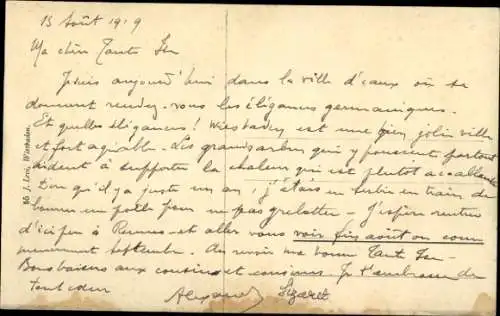 15 Août 1919
Ma chère Tante
Je suis aujourd'hui dans la ville d'eaux où se
donnent rendez-vous les élégances germaniques.
Et quelles élégances! Wiesbaden est une bien jolie ville
et fort agréable. Les grands arbres qui y poussent partout
aident à supporter la chaleur qui est plutôt accablante
Dire qu'il y a juste un an, j'étais en train de
pour ne pas grelotter. J'espère rentrer
d'ici peu à Rennes et aller vous voir fin août ou com
mencement septembre. Au revoir ma bonne Tante
Bons baisers aux cousins et cousines. Je t'embrasse de
tout cœur
Alexandre
65 J. Levi, Wiesbaden.